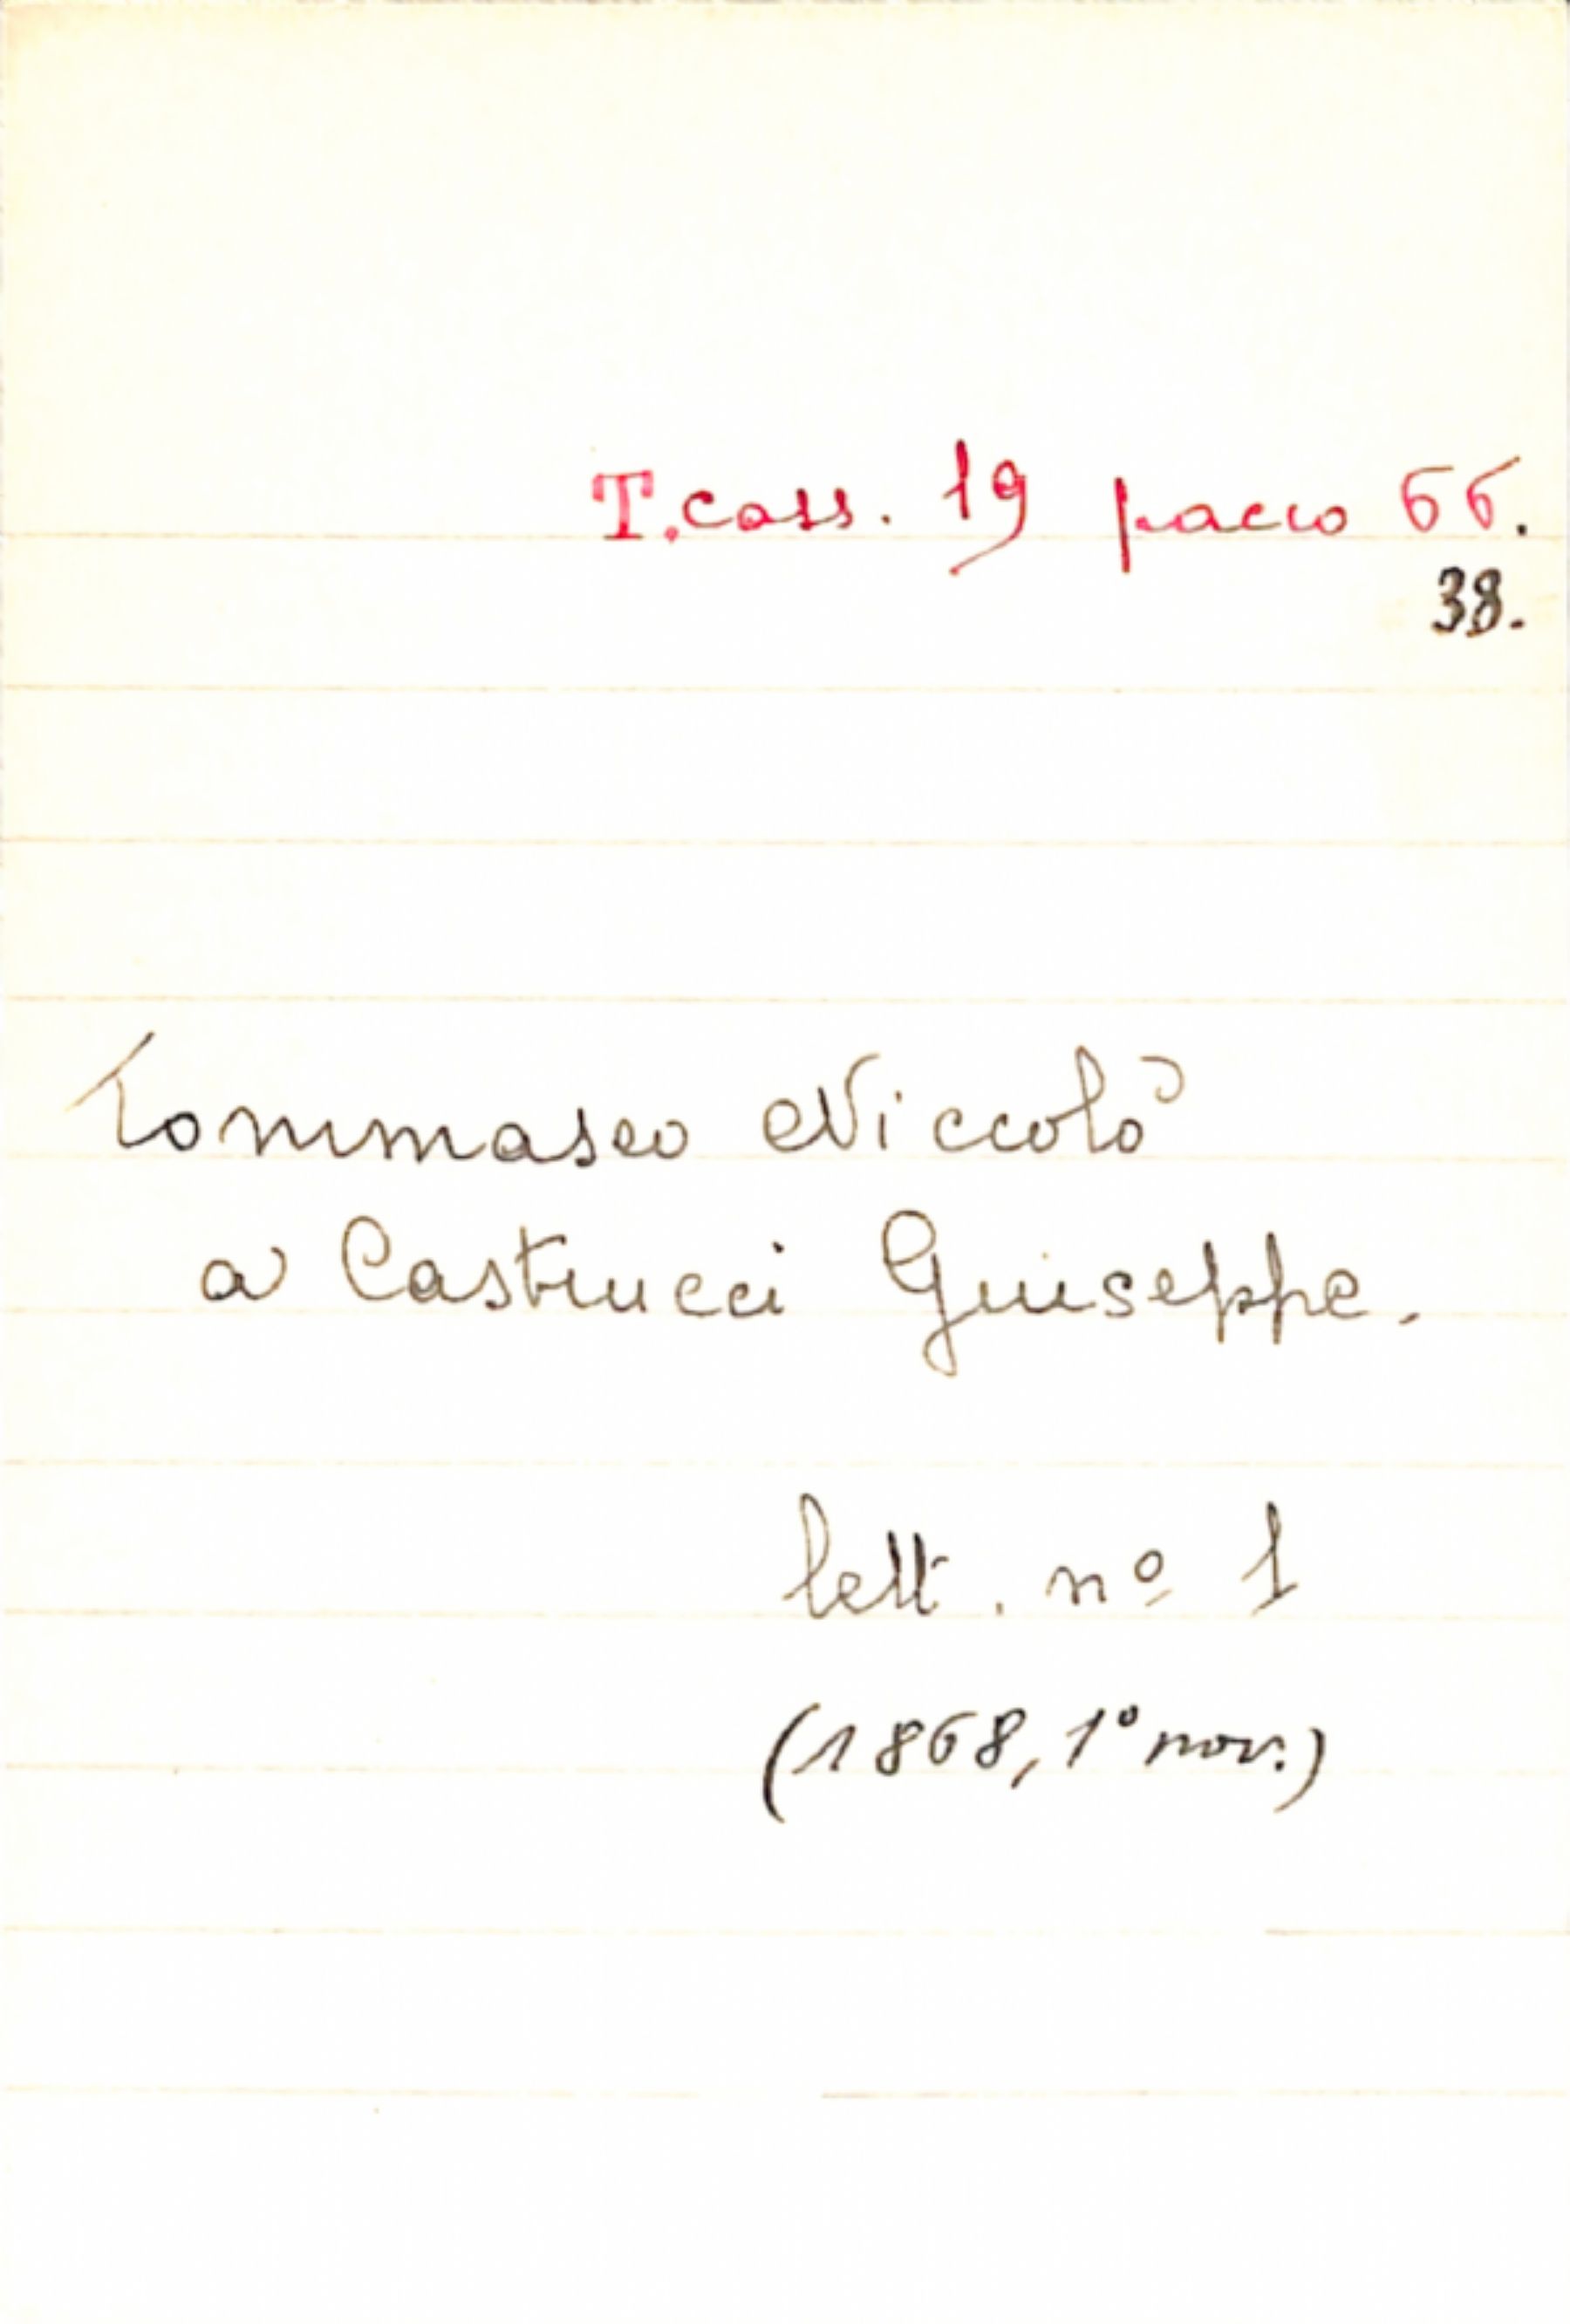 T. cass. 19 pacco 66.
38.
Tommaseo Niccolò
a Castrucci Giuseppe.
lett. nº 1
(1868, 1° nov.)